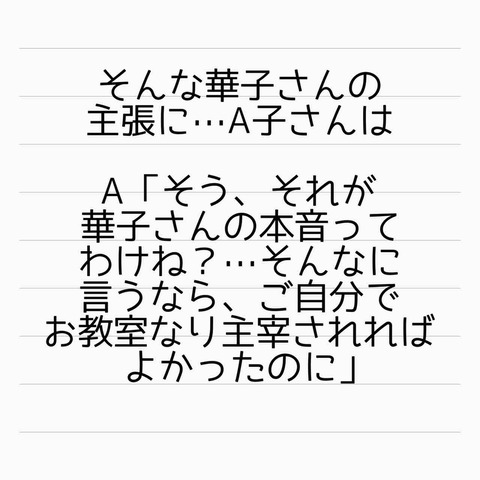 そんな華子さんの
主張に…A子さんは
A「そう、それが
華子さんの本音って
わけね？…そんなに
言うなら、ご自分で
お教室なり主宰されれば
よかったのに」